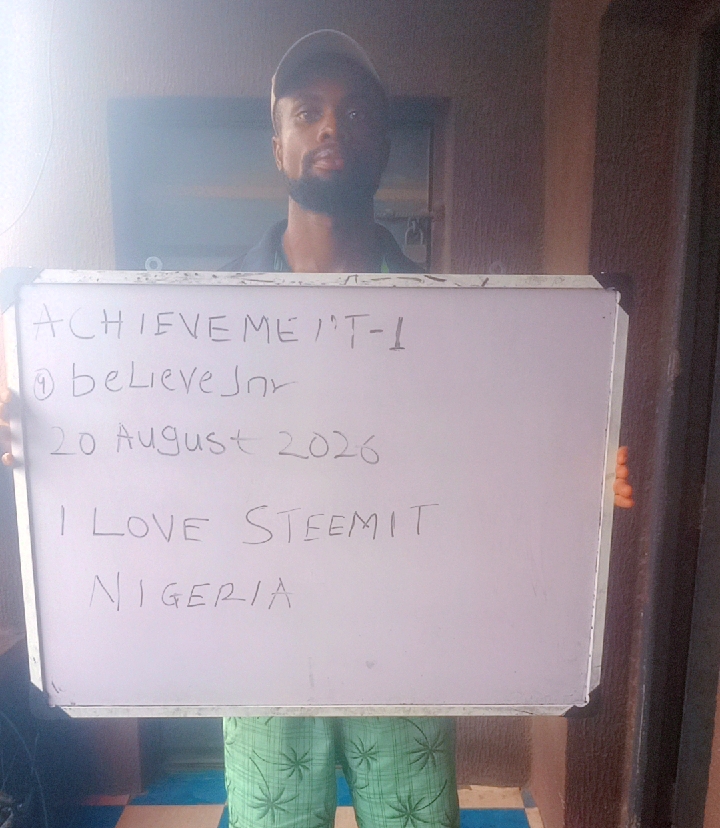 ACHIEVEMENT-1
@believeJnr
20 August 2026
I LOVE STEEMIT
NIGERIA